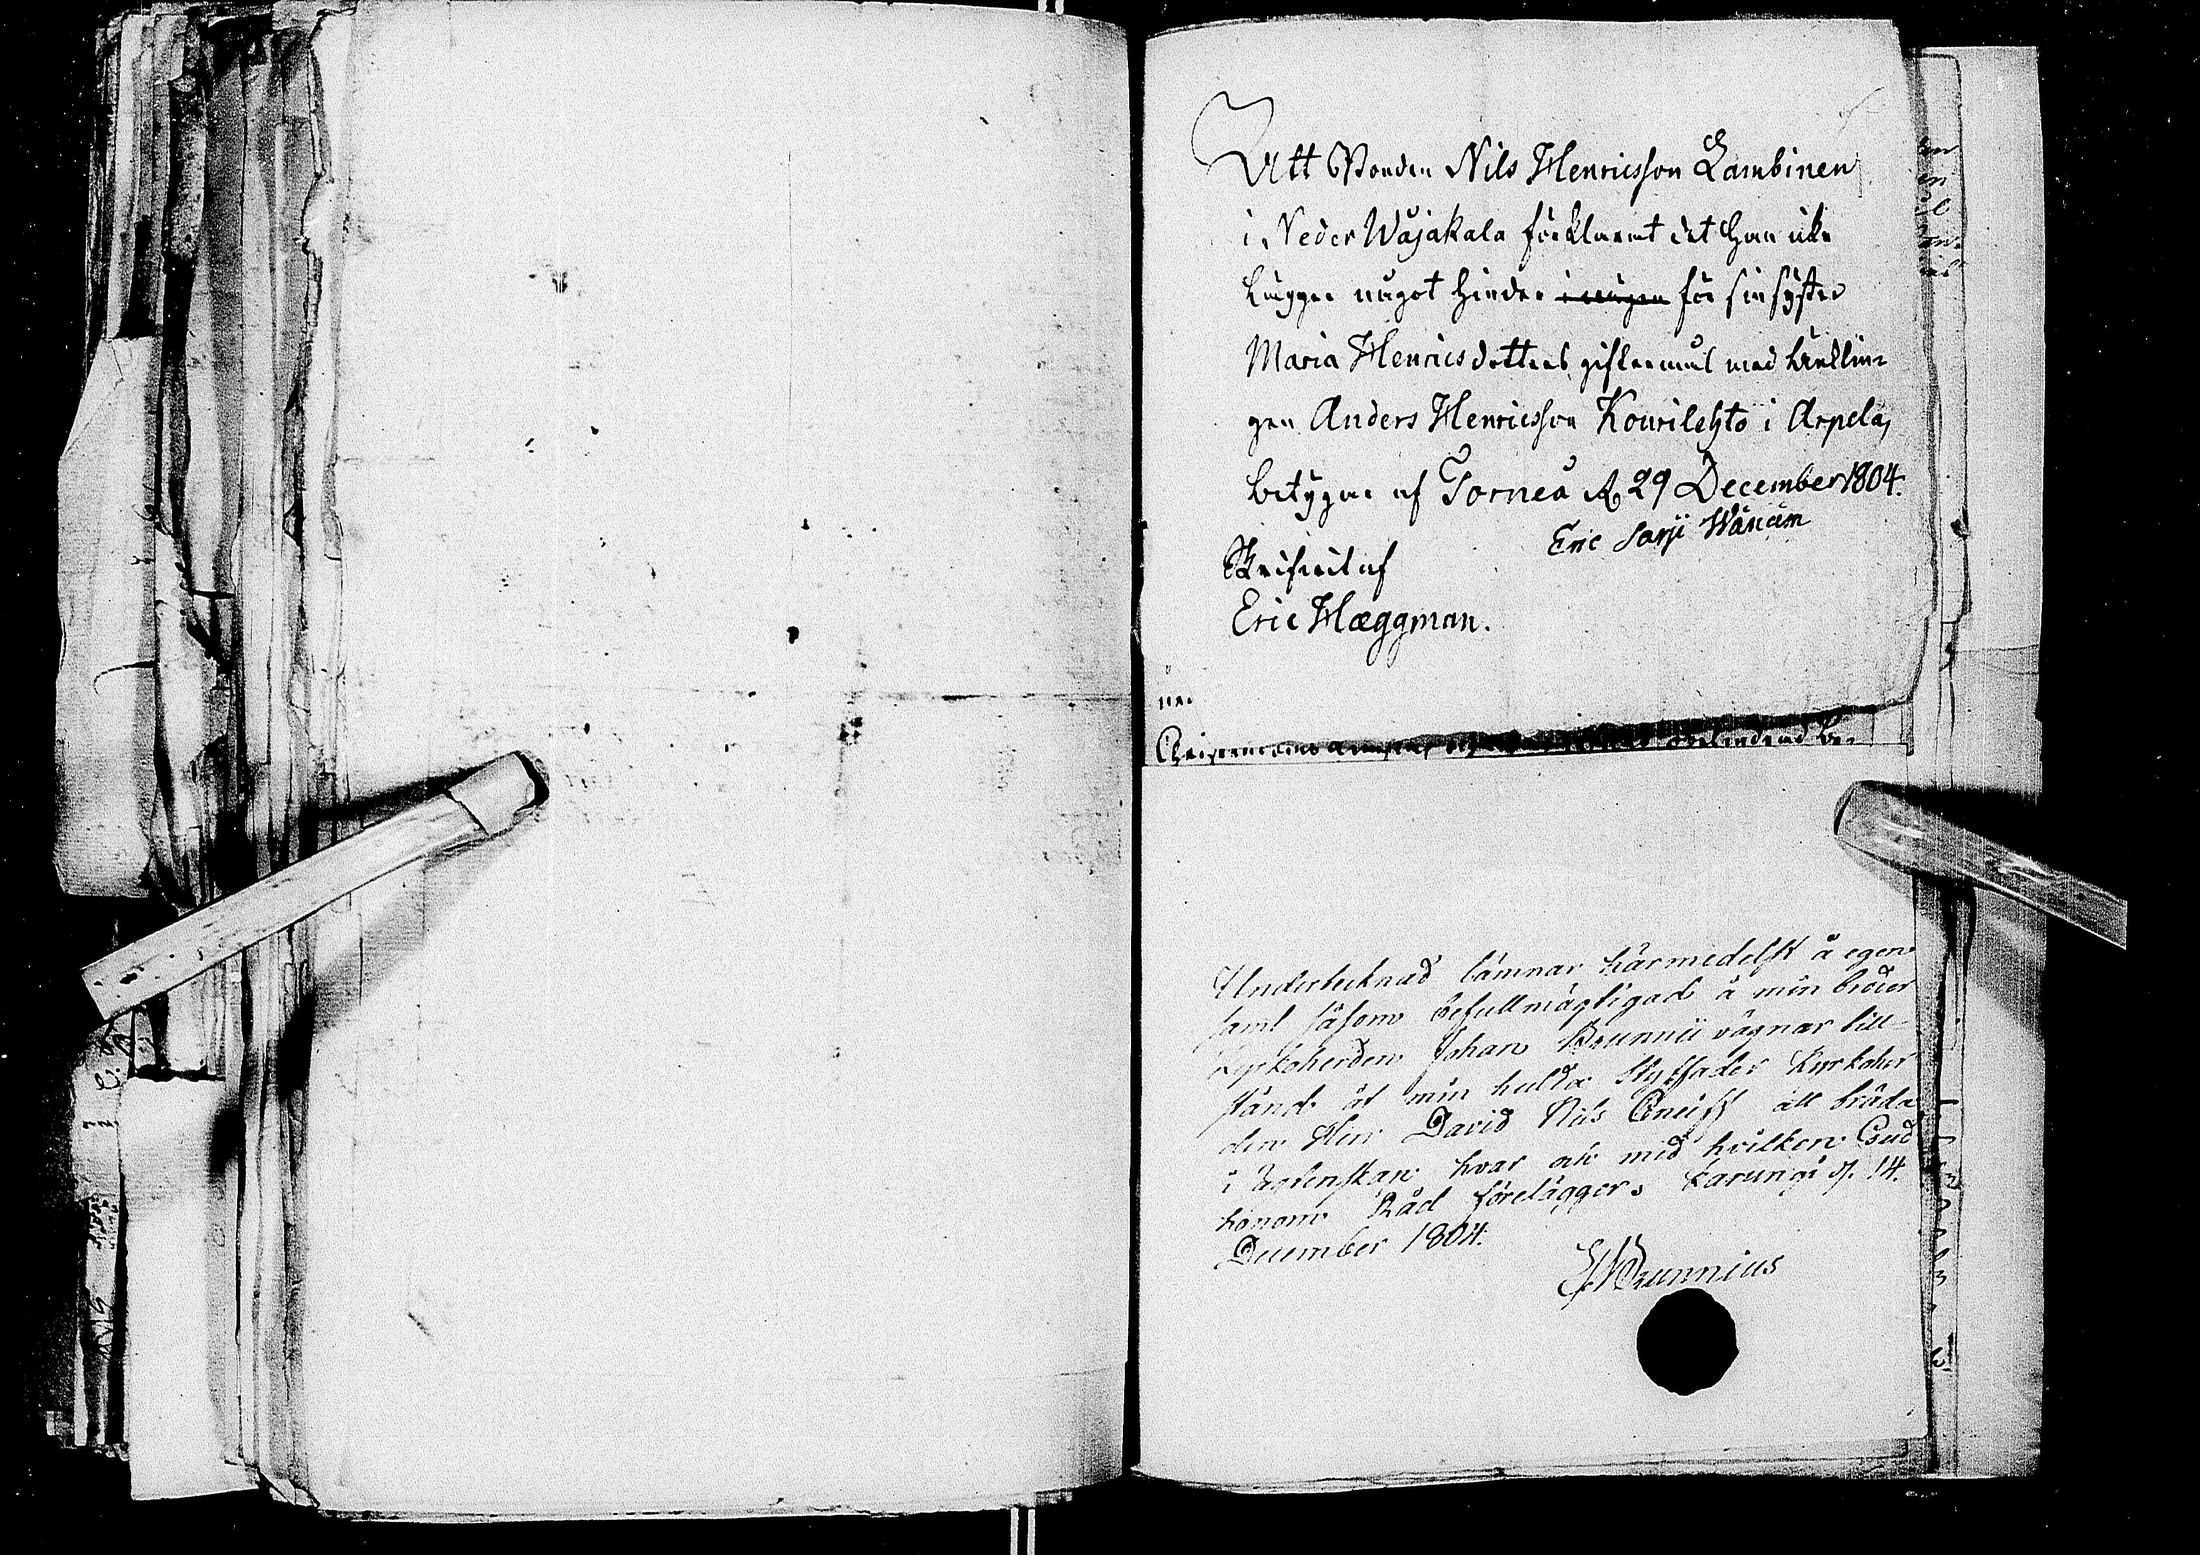 Att Bonden Nils Henricsson Lambinen
i Neder Wojakala förklarat det han icke
lägger något hinder i wägen för sin syster
Maria Henricsdotters giftermål med Ynklin-
gen Anders Henricsson Kourilehto i Arpela,
betygar af Torneå d. 29 December 1804.
Eric
Skrifvit af
Eric Hæggman.
ne.
Undertecknad lämnar härmedelst å egen
samt såsom befullmägtigad å min broder
Kyrkoherden Johan Brunnii vägnar till-
stånd åt min hulda Styffader Kyrkoher
den Herr David Nils Cneiff att träda
i Äktenskap hvar och med hvilken Gud
honom Råd förelägger. Karungi d. 14.
December 1804.
Brunnius